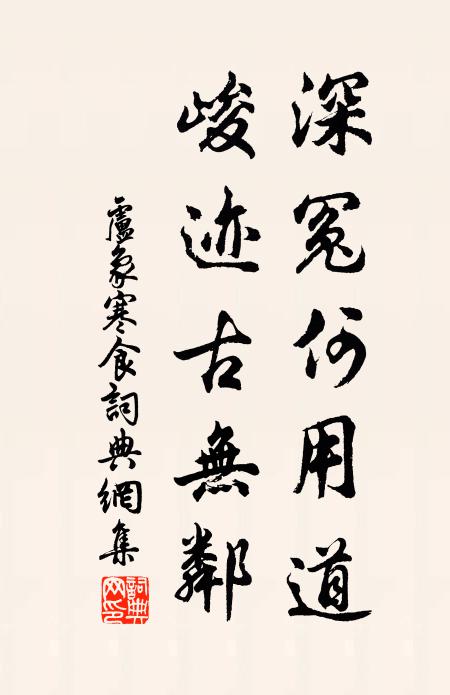 深冤何用道
峻迹古無鄰
盧象寒食詞典網集
詞典網印